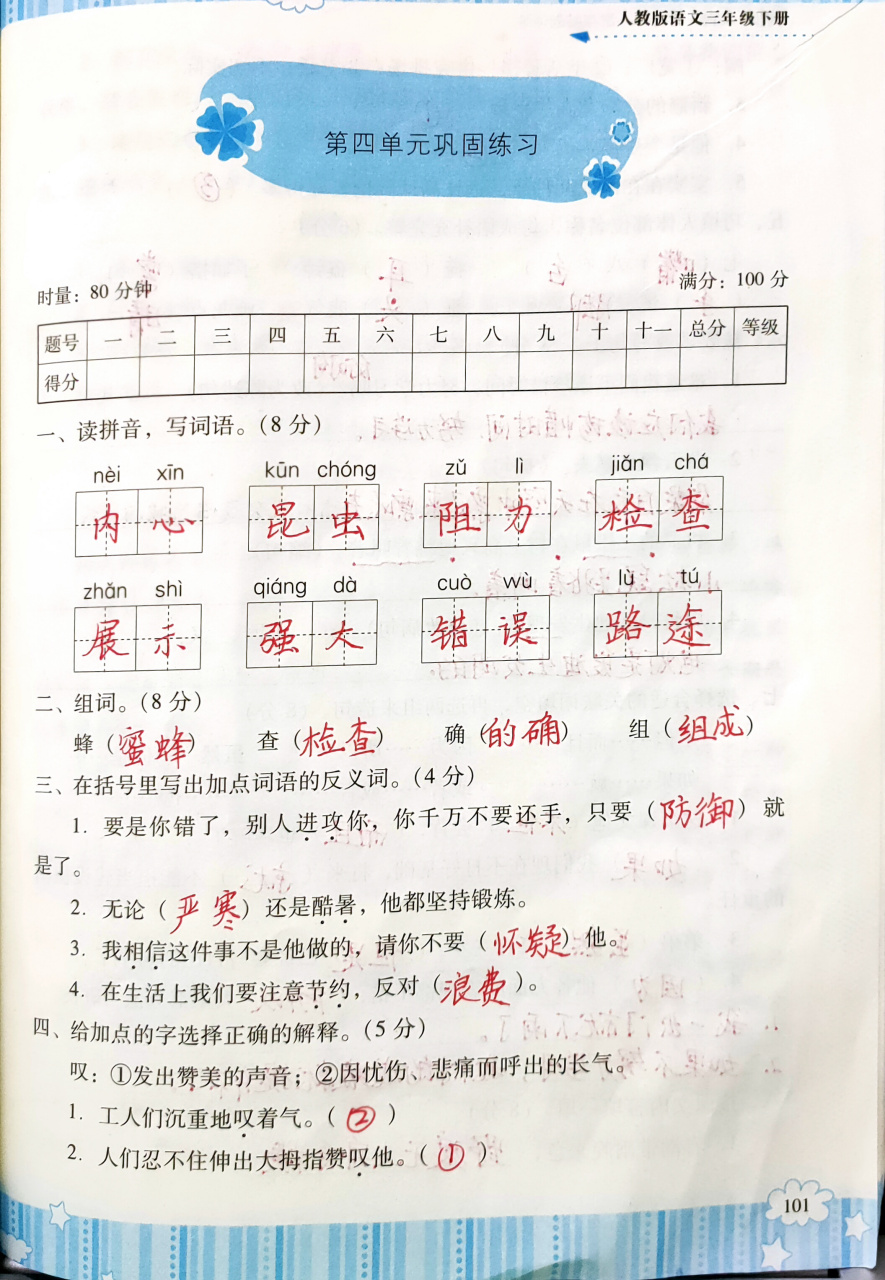 人教版语文三年级下册
第四单元巩固练习
时量：80分钟 满分：100分
题号 一 二 三 四 五 六 七 八 九 十 十一 总分 等级
得分
一、读拼音，写词语。（8分）
nèi xīn kūn chóng zǔ lì jiǎn chá
内心 昆虫 阻力 检查
zhǎn shì qiáng dà cuò wù lù tú
展示 强大 错误 路途
二、组词。（8分）
蜂（蜜蜂） 查（检查） 确（的确） 组（组成）
三、在括号里写出加点词语的反义词。（4分）
1. 要是你错了，别人进攻你，你千万不要还手，只要（防御）就
是了。
2. 无论（严寒）还是酷暑，他都坚持锻炼。
3. 我相信这件事不是他做的，请你不要（怀疑）他。
4. 在生活上我们要注意节约，反对（浪费）。
四、给加点的字选择正确的解释。（5分）
叹：①发出赞美的声音；②因忧伤、悲痛而呼出的长气。
1. 工人们沉重地叹着气。（②）
2. 人们忍不住伸出大拇指赞叹他。（①）
101